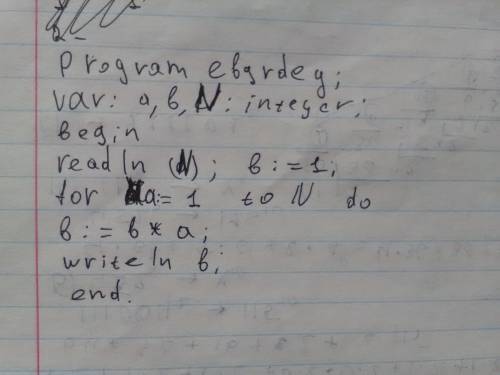 Program ebgrdeg;
var: a, b, N: integer;
begin
readln (N); b:=1;
for a:= 1 to N do
b:= b * a;
writeln b;
end.